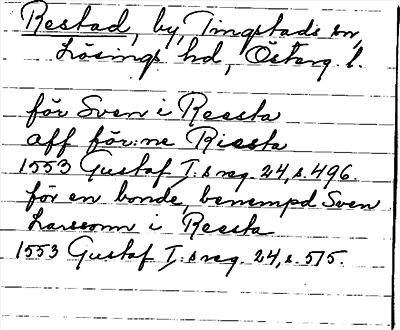 Restad, by, Tingstads sn,
Lösings hd, Österg. l.
för Sven i Reesta
aff för:ne Riesta
1553 Gustaf I:s reg. 24, s. 496.
för en bonde, benempd Sven
Larsson i Reesta
1553 Gustaf I:s reg. 24, s. 515.